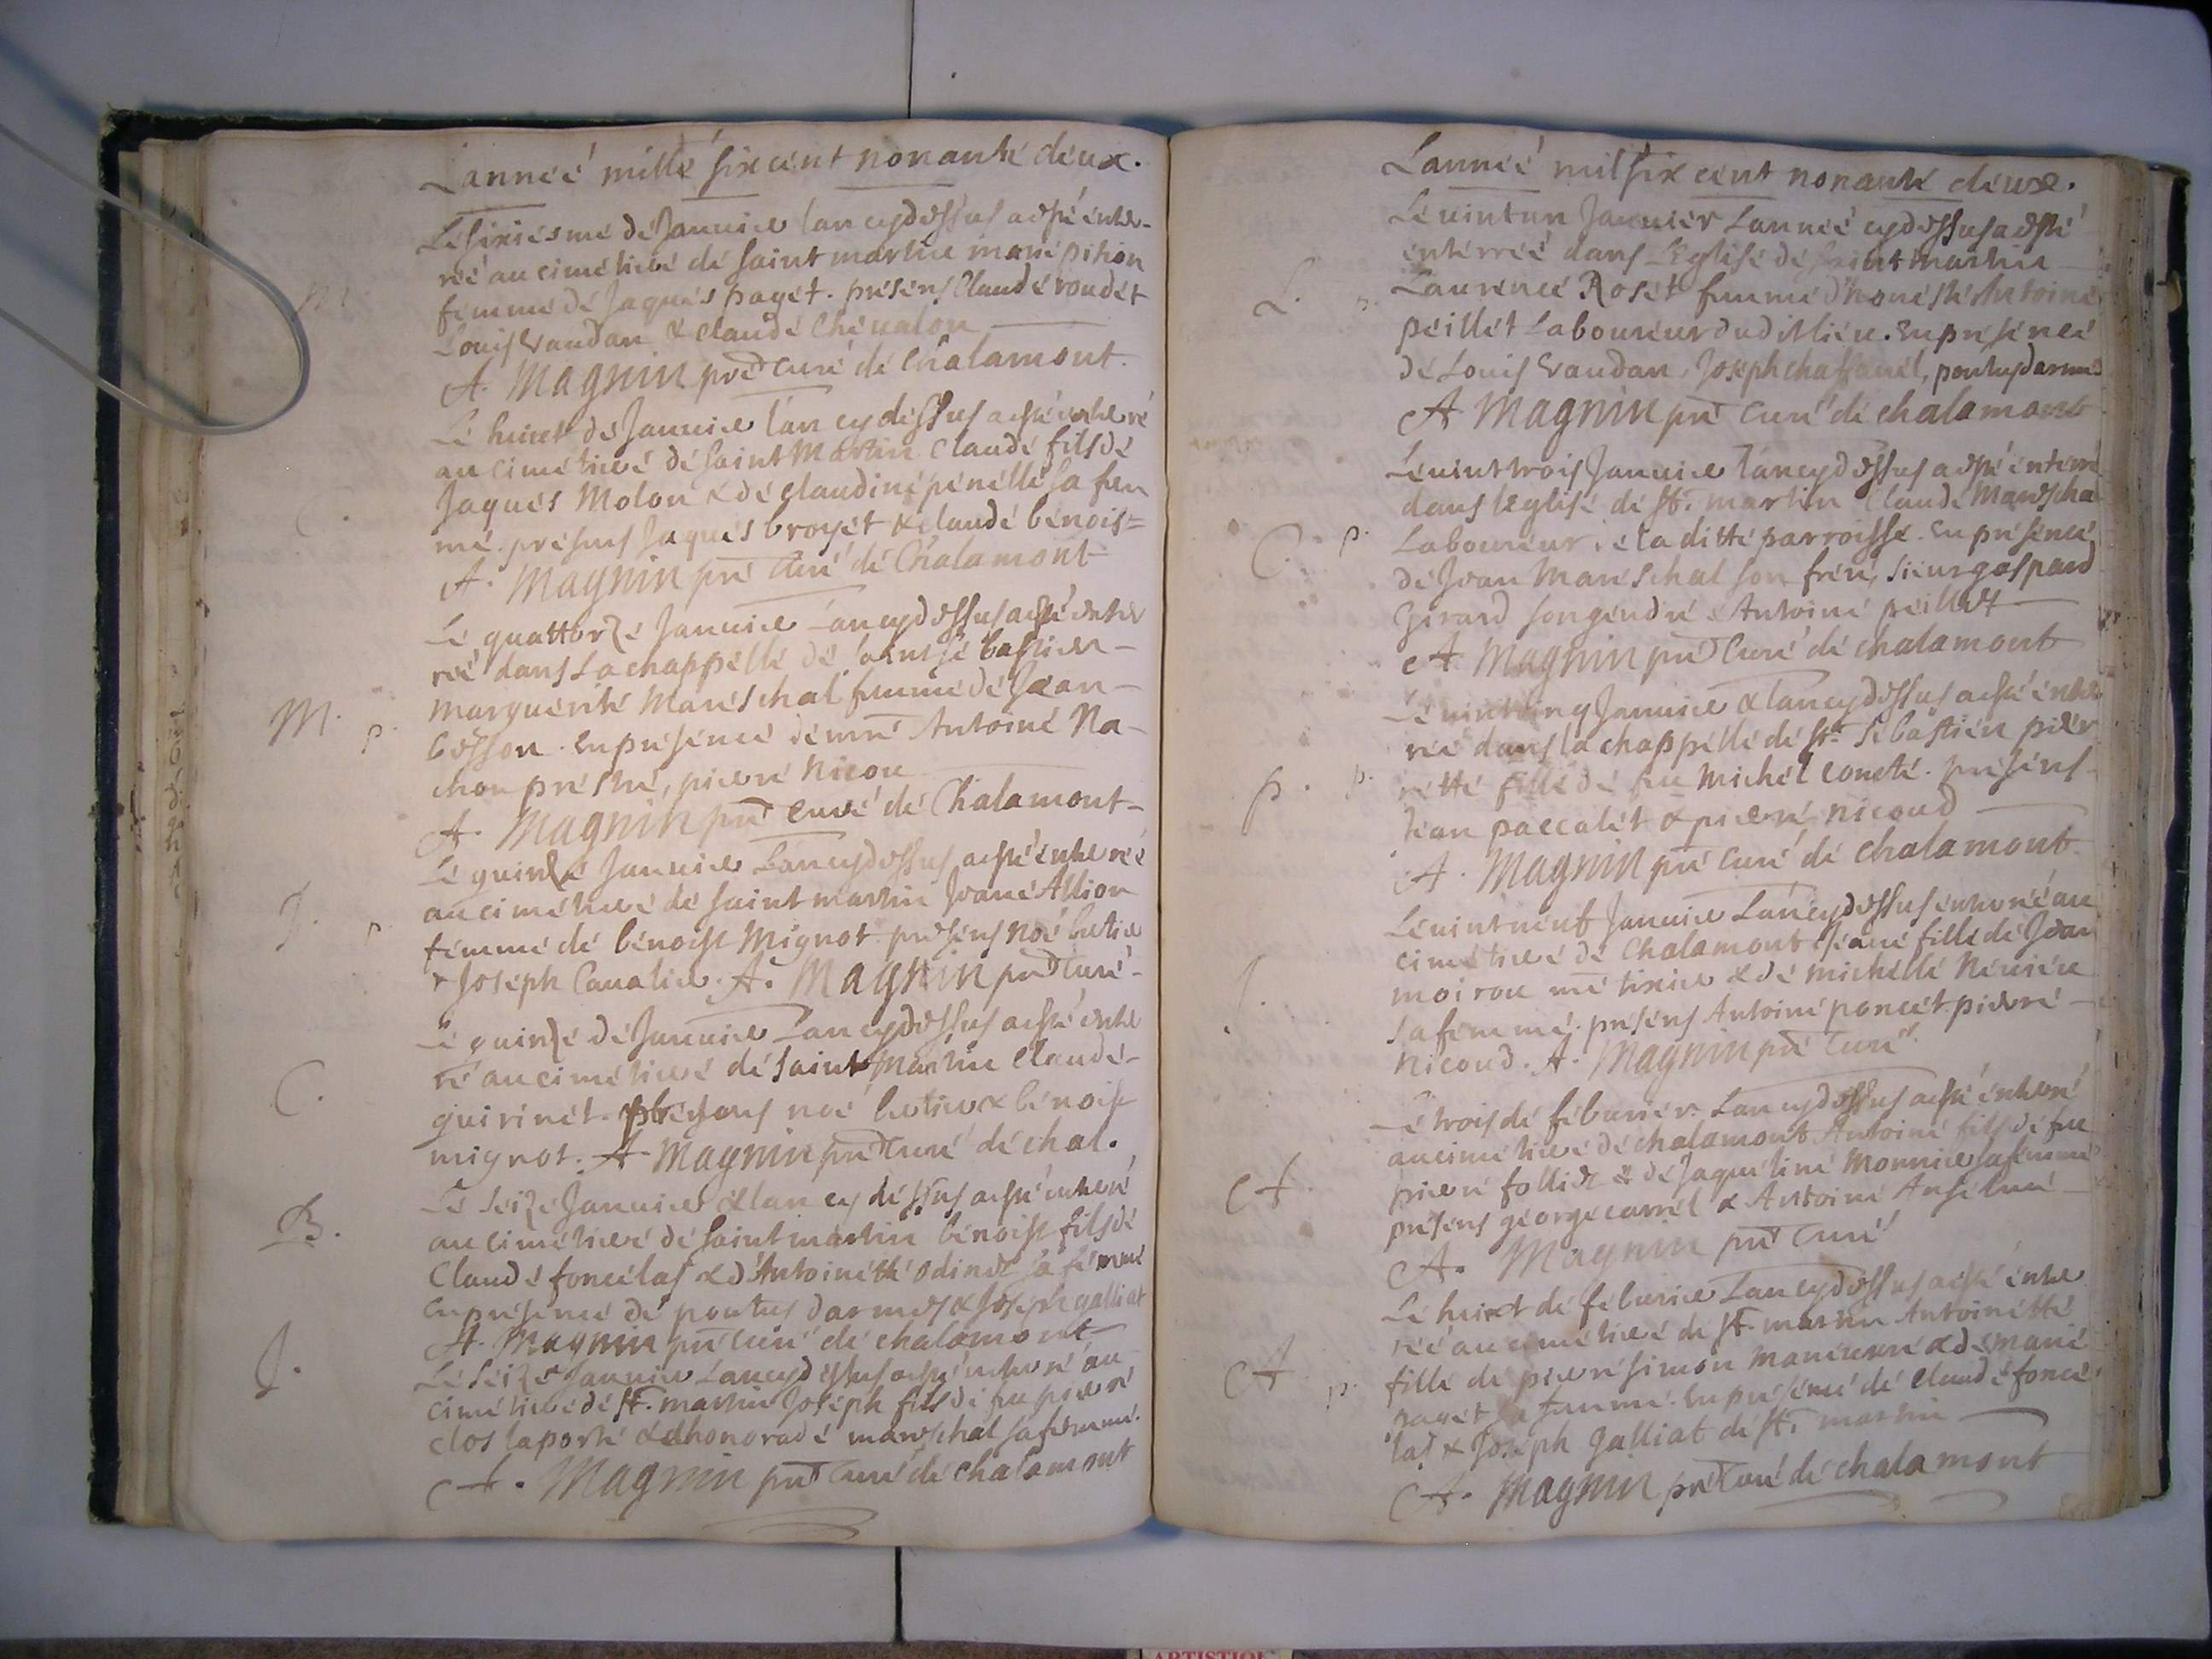 Lanneé mille six cent nonanté deux.
Lé sixiésmé dé Januier lan cy dessus a esté enter-
reé au cimétieré dé saint martin marié pition
femmé dé Jaqués payet. présens Claudé roudét
Louis Vaudan & claudé Chéualon
A. Magnin pre Curé dé Chalamont.
Lé huict dé Januier lan cy déssus a esté enterré
au cimétieré dé saint Martin Claudé fils dé
Jaqués Molon & dé Claudiné pénéllé sa fem
mé. présens Jaqués broyét & claudé bénois=
A. Magnin pre Curé dé Chalamont
Lé quattorzé Januier Lan cy dessus a esté enter
reé dans La chappéllé dé saint sé bastien
M.
Marguerité Maréschal femmé dé Jean
p.
bésson. En présencé dé mre Antoiné Na-
chon préstré, pierré Nicou
A. Magnin pre Curé dé Chalamont
Lé quinzé Januier Lan cy dessus a esté enterreé
J.
au cimétieré dé saint martin Jeané Allion
p.
femmé dé bénoist Mignot. présens Noé bertier
& Joséph Caualier. A. Magnin pre Curé
Lé quinzé dé Januier Lan cy dessus a esté enter
C.
ré au cimétieré dé saint Martin Claudé
guirinét. présens noé bertier & bénoist
mignot. A Magnin pre Curé dé chal.
Lé séizé Januier & lan cy déssus a esté enterré
B.
au cimétieré dé saint martin bénoist fils dé
Claudé foncélas & d'Antoinétté odinét sa femmé
En présencé dé pontus darmes & Joséph galliat
A. Magnin pre Curé dé chalamont
J.
Lé séizé Januier Lan cy déssus a esté enterré au
cimétieré dé St. martin Joséph fils dé feu pierré
clos laporté & d'honoradé maréschal sa femmé.
A. Magnin pre Curé dé chalamont
Lanneé mil six cent nonanté deux.
Lé uint un Januiér Lanneé cy dessus a esté
entérreé dans L'Eglisé dé saint martin
L.
Laurencé Rosét femmé d'honésté Antoiné
péillét Laboureur dudit liéu. En présencé
dé Louis Vaudan, Joséph chaffanél, pontus darmes
A Magnin pre Curé dé chalamont
Lé uint trois Januier lan cy dessus a esté enterré
dans leglisé dé St. martin Claudé Mareschal
C.
p.
Laboureur dé la ditté parroissé. En présencé
dé Jean Maréschal son fréré, sieur gaspard
Girard son géndré & Antoiné péillét
A. Magnin pre Curé dé chalamont
Lé uint cinq Januier & lan cy dessus a esté enter
reé dans la chappéllé dé St. Sébastién pier
p.
p.
rétté fillé dé feu Michél Conté. présens
Jean paccalét & pierré nicoud
A. Magnin pre Curé dé chalamont
Lé uint neuf Januier Lan cy dessus enterreé au
cimétieré dé Chalamont Jeané fillé dé Jean
J.
moirou mé tixier & dé michéllé
sa femmé. présens Antoiné poncét pierré
Nicoud. A. Magnin pre Curé
Lé trois dé féburiér Lan cy dessus a esté enterré
au cimétieré dé chalamont Antoiné fils dé feu
A.
pierré folliét & dé Jaquéliné Monnier sa femmé
présens géorgé carrél & Antoiné Ansélmé
A. Magnin pre Curé
Lé huict dé féburier Lan cy dessus a esté enter
reé au cimétieré dé St. martin Antoinétté
A
p.
fillé dé pierré simon & dé marié
payét sa femmé. En présencé dé Claudé foncé
las & Joséph Galliat dé St. martin
A. Magnin pre Curé dé chalamont